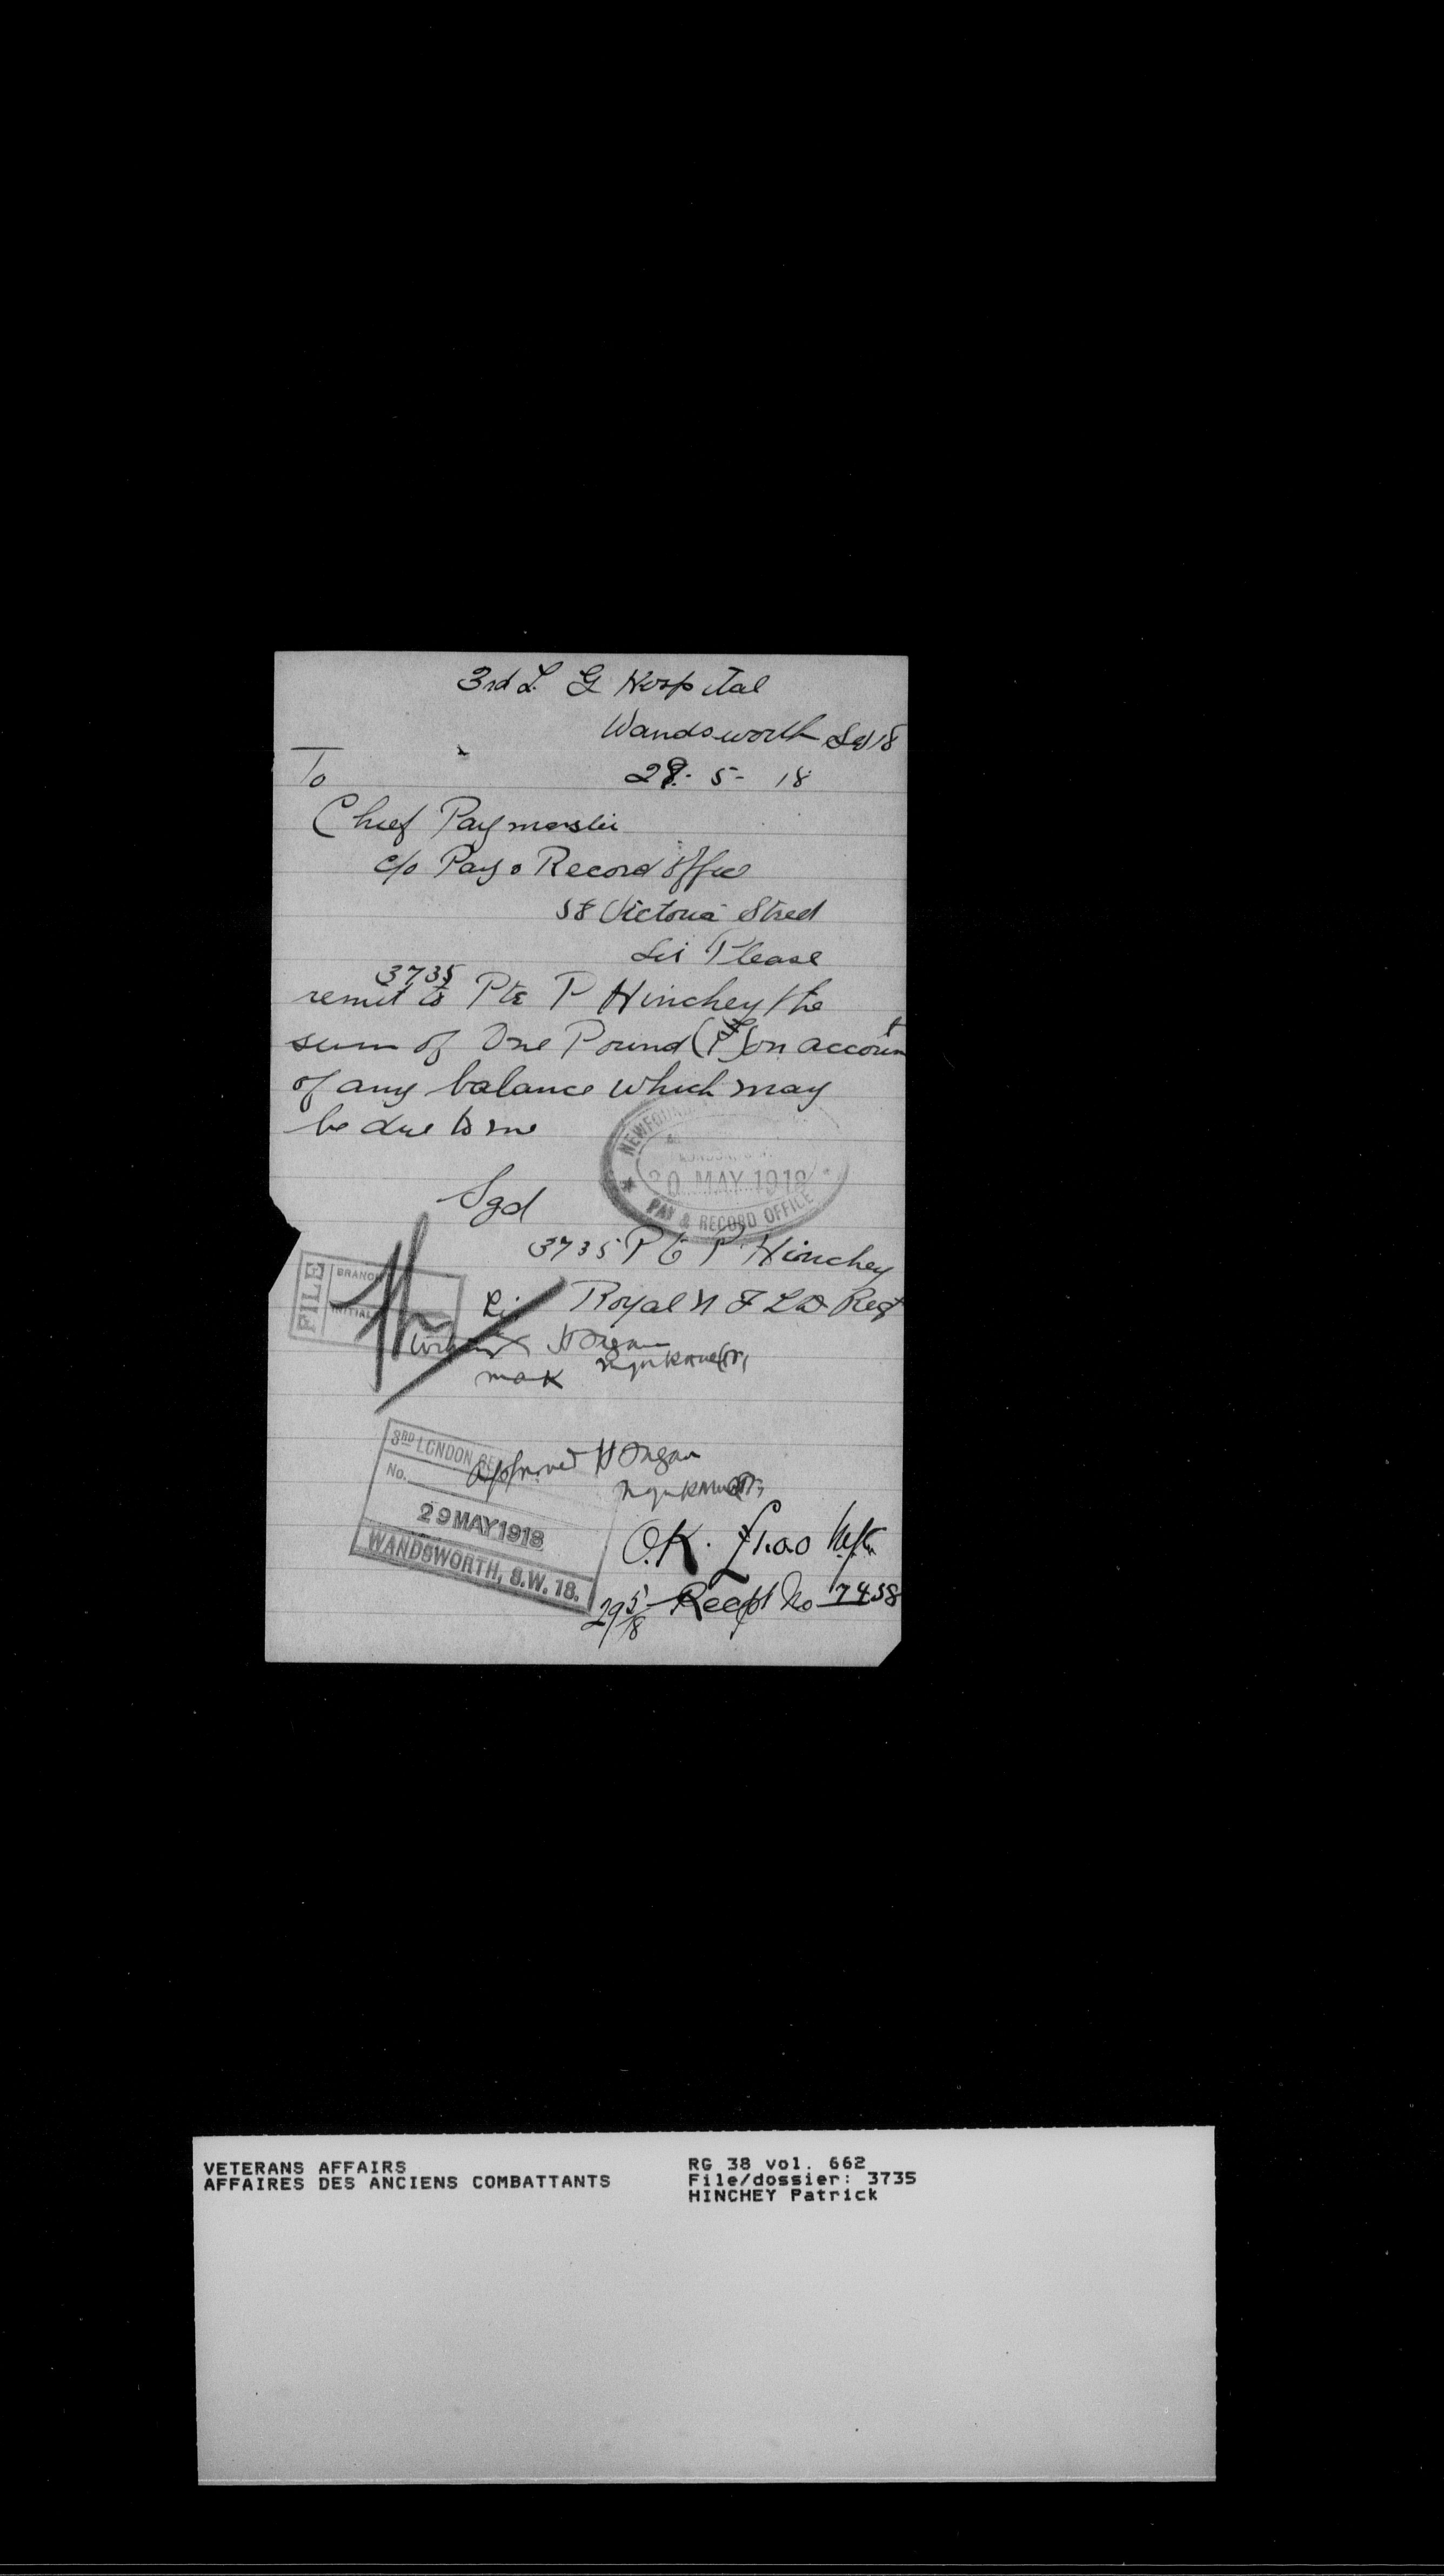 3rd L. G Hospital
Wandsworth SW18
To
29. 5 - 18
Chief Paymaster
c/o Pay & Record Office
58 Victoria Street
Sir Please
3735
remit to Pte P Hinchey the
sum of One Pound (£1) on account
of any balance which may
be due to me
NEWFOUND
LONDON
30 MAY 1918
PAY & RECORD OFFICE
Sgd
3735 Pte P Hinchey
Royal N F L D Regt
FILE
BRANCH
INITIAL
mark
3RD LONDON GE
No.
29 MAY 1918
WANDSWORTH, S.W. 18.
Approved
O.K. £1.0.0
29/5/18 Recpt No 7458
VETERANS AFFAIRS
AFFAIRES DES ANCIENS COMBATTANTS
RG 38 vol. 662
File/dossier: 3735
HINCHEY Patrick